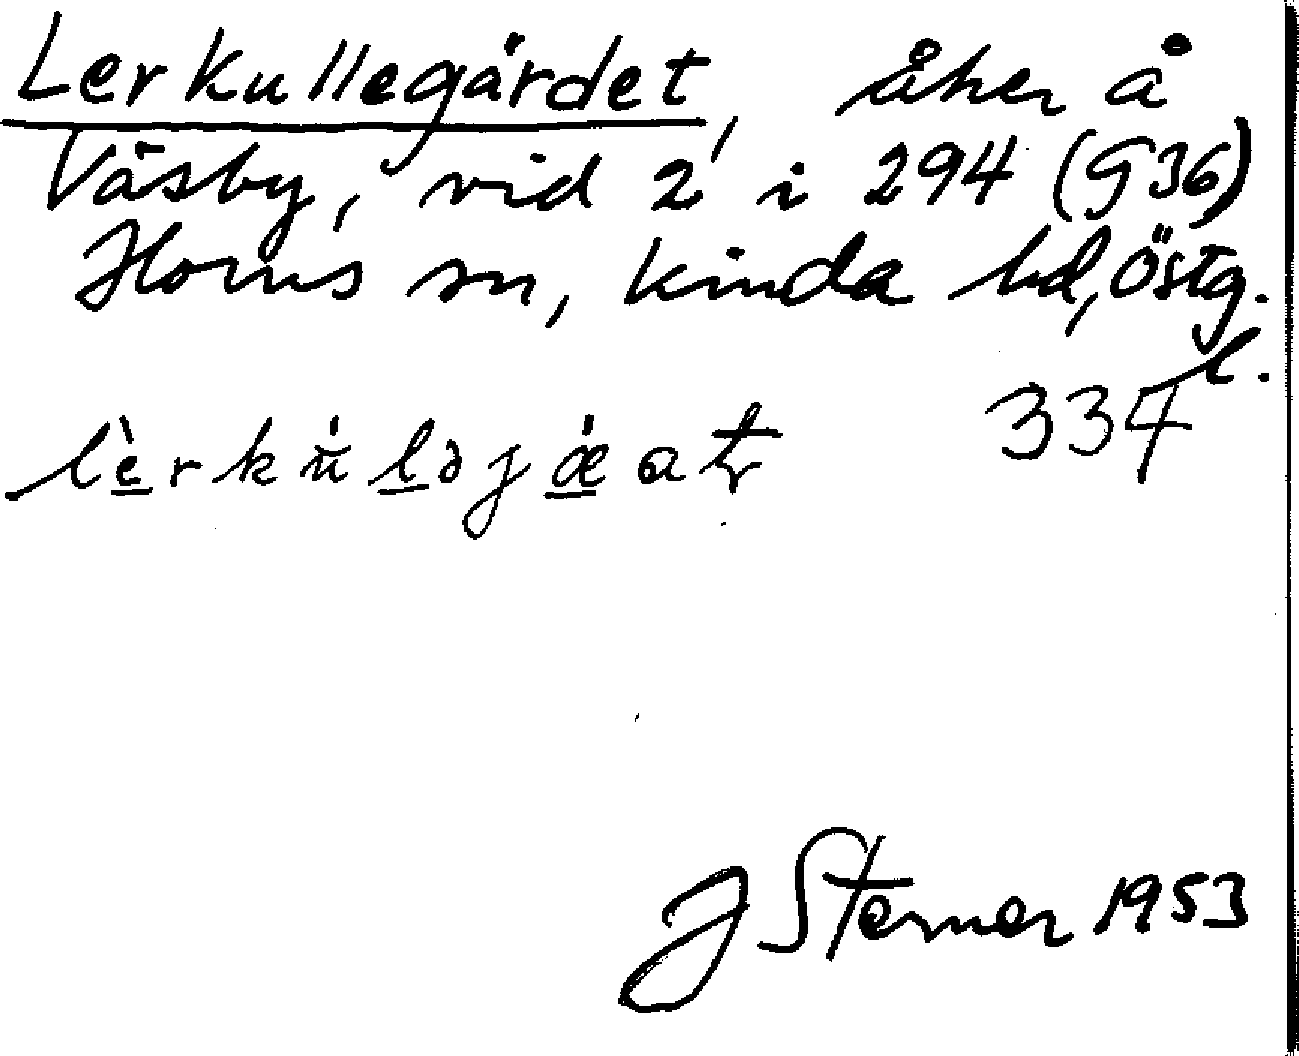 Lerkullegärdet, åker å
Väsby, vid 2 i 294 (G36)
Horns sn, Kinda hd, Östg.
l.
334
J Sterner 1953